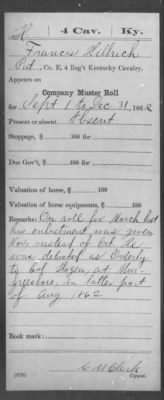 H | 4 Cav. | Ky.
Francis Hillrich
Pvt., Co. E, 4 Reg't Kentucky Cavalry.
Appears on
Company Muster Roll
for Sept 1 to Dec 31, 1862
Present or absent Absent
Stoppage, $ 100 for
Due Gov't, $ 100 for
Valuation of horse, $ 100
Valuation of horse equipments, $ 100
Remarks: On roll for March last
his enlistment was given
Nov, instead of Oct. He
was detached as Orderly
to Col Hazen, at Mur-
freesboro, in latter part
of Aug 1862
Book mark:
C M Clark
Copyist.